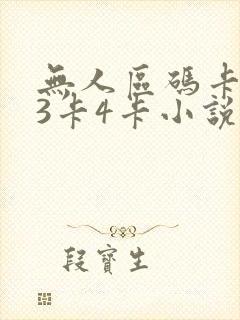 無人區碼卡
3卡4卡小說
段寶生